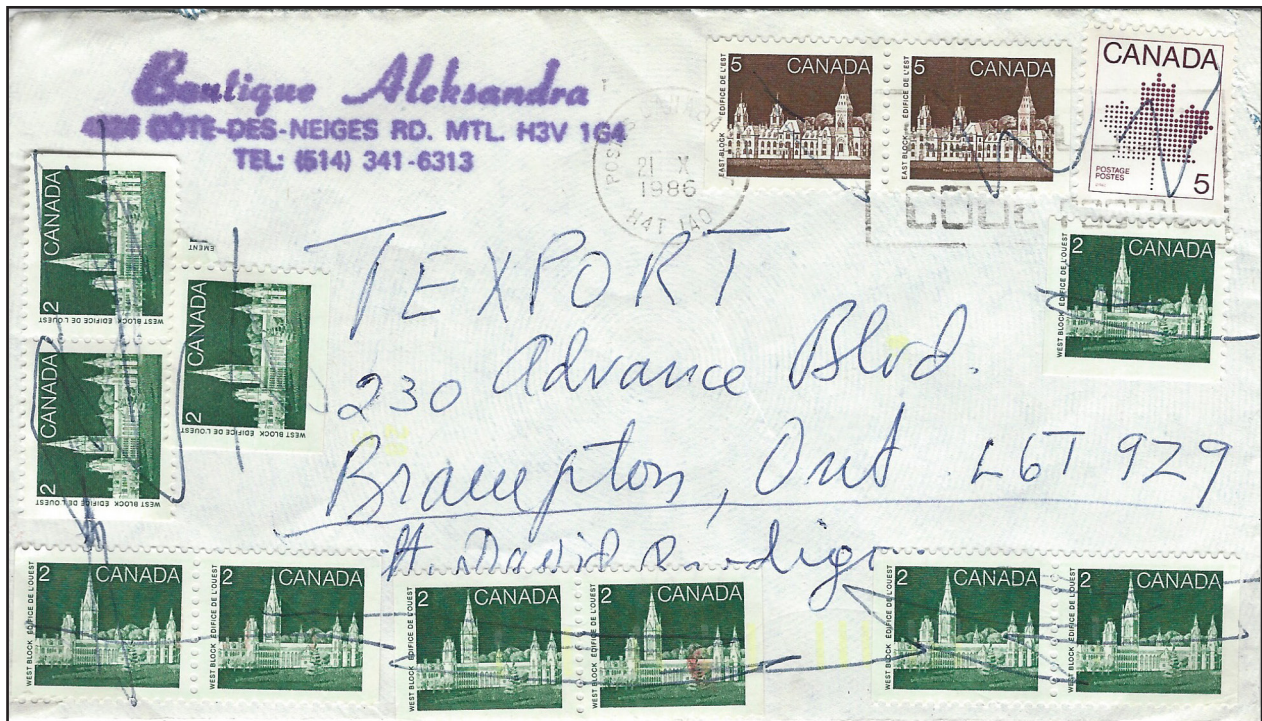 Boutique Aleksandra
CÔTE-DES-NEIGES RD. MTL. H3V 1G4
TEL: (514) 341-6313
21 X
1986
H4T 1A0
5 CANADA
EAST BLOCK ÉDIFICE DE L'EST
5 CANADA
EAST BLOCK ÉDIFICE DE L'EST
CANADA
POSTAGE
POSTES
5
CODE POSTAL
2 CANADA
WEST BLOCK ÉDIFICE DE L'OUEST
2 CANADA
WEST BLOCK ÉDIFICE DE L'OUEST
2 CANADA
WEST BLOCK ÉDIFICE DE L'OUEST
2 CANADA
WEST BLOCK ÉDIFICE DE L'OUEST
EMENT
TEXPORT
230 Advance Blvd.
Brampton, Ont L6T 9Z9
David
2 CANADA
WEST BLOCK ÉDIFICE DE L'OUEST
2 CANADA
WEST BLOCK ÉDIFICE DE L'OUEST
2 CANADA
WEST BLOCK ÉDIFICE DE L'OUEST
2 CANADA
WEST BLOCK ÉDIFICE DE L'OUEST
2 CANADA
WEST BLOCK ÉDIFICE DE L'OUEST
2 CANADA
WEST BLOCK ÉDIFICE DE L'OUEST